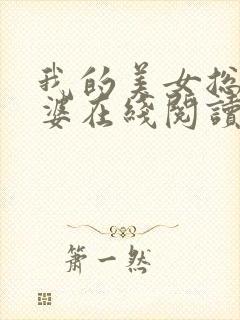 我的美女总
婆在线阅读
箫一然